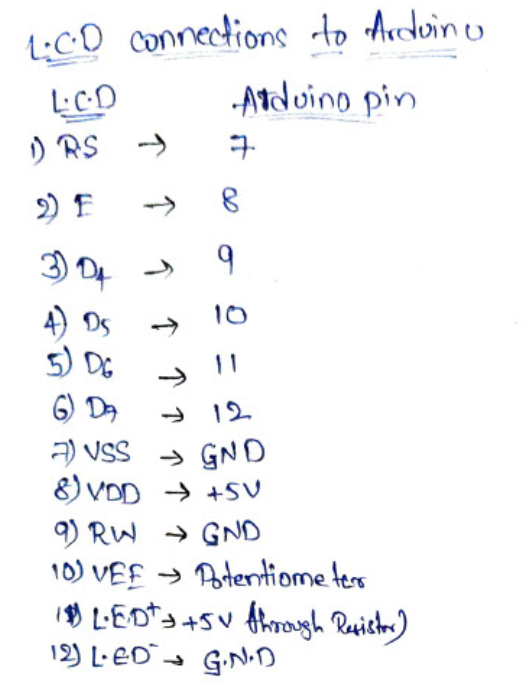 L.C.D connections to Arduino
L.C.D Arduino pin
1) RS → 7
2) E → 8
3) D4 → 9
4) D5 → 10
5) D6 → 11
6) D7 → 12
7) VSS → GND
8) VDD → +5V
9) RW → GND
10) VEE → Potentiometer
11) L.E.D+ → +5V through Resistor)
12) L.ED- → G.N.D